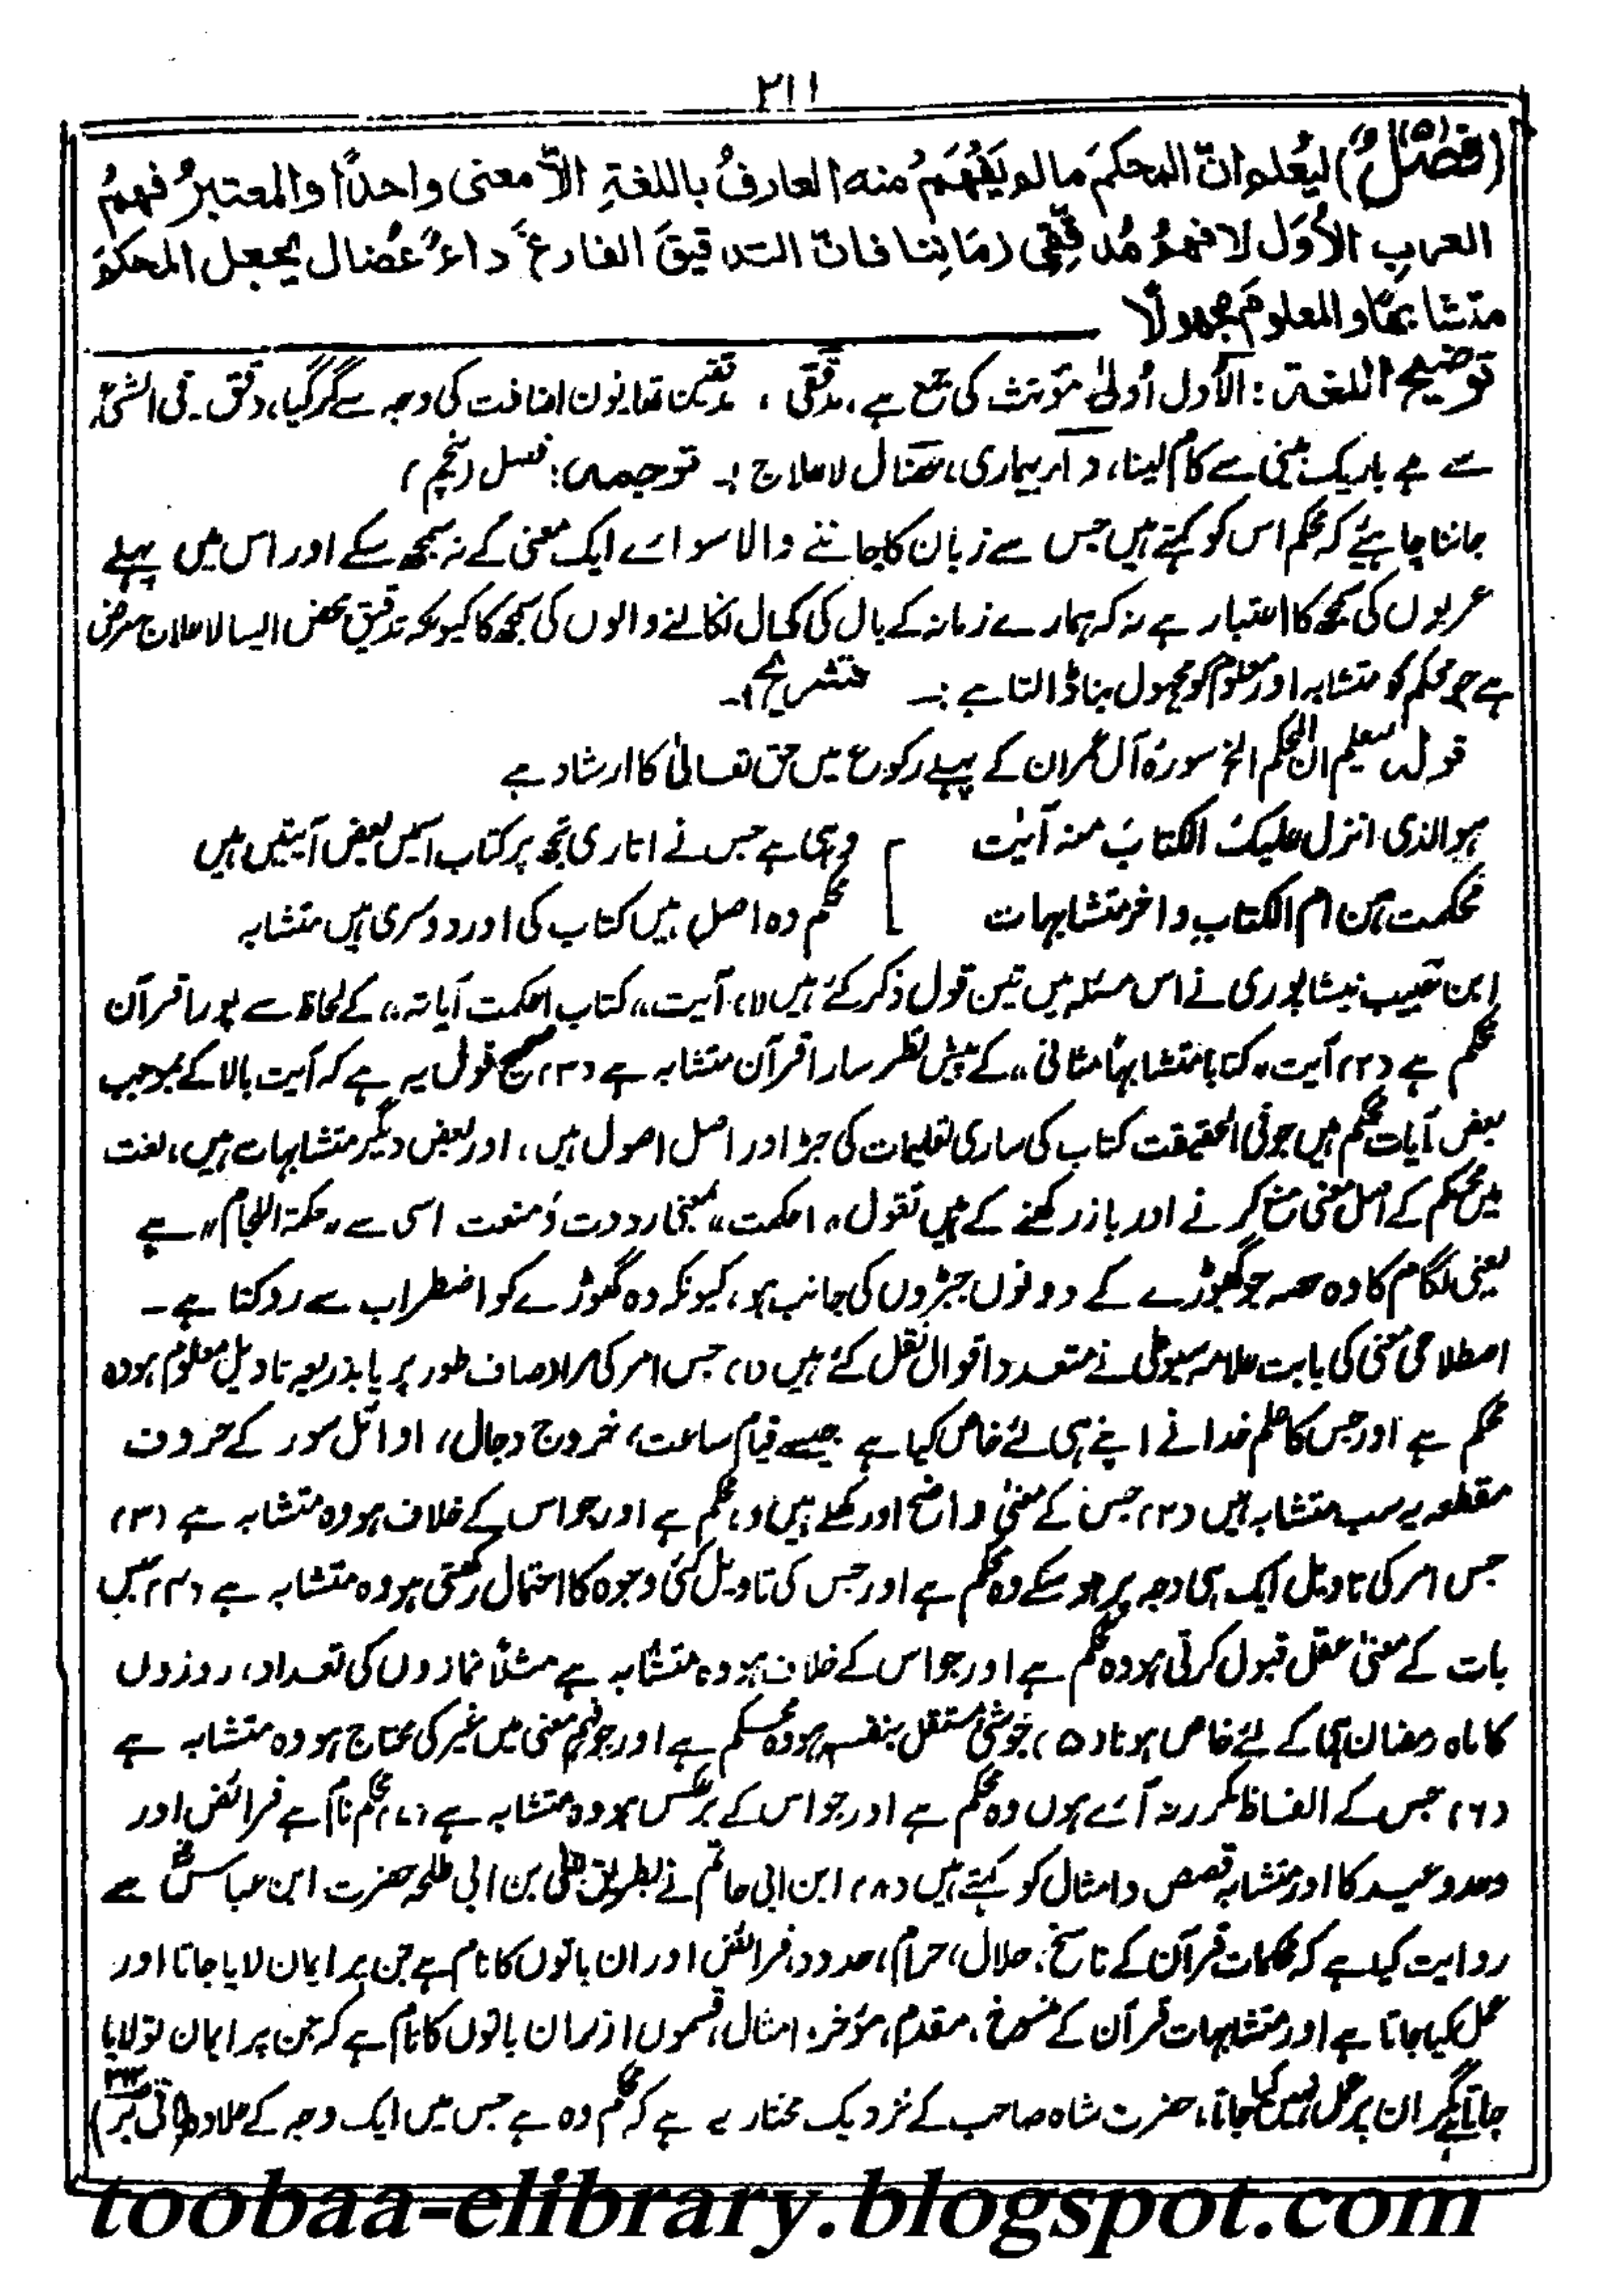 ۲۱۱
(فَصْلٌ)(۵) لیُعْلم انّ المحکمَ مالم یَفْهَمْ منه العارفُ باللغةِ الّا معنی واحدًا والمعتبرُ فهمُ
العربِ الأُوَل لا فهمُ مُدقِّقِی زمَاننا فانّ التدقیقَ الفارغَ داءٌ عُضال یجعل المحکمَ
متشابهًا والمعلومَ مجهولًا
توضیح اللغة: الأُول اُولیٰ مؤنث کی جمع ہے، مدققی، مدققین تھا نون اضافت کی وجہ سے گر گیا، دقق۔ فی الشئ
سے ہے باریک بینی سے کام لینا، داء بیماری، عضال لاعلاج :۔ ترجمہ: فصل (پنجم)
جاننا چاہیئے کہ محکم اس کو کہتے ہیں جس سے زبان کا جاننے والا سوائے ایک معنی کے نہ سمجھ سکے اور اس میں پہلے
عربوں کی سمجھ کا اعتبار ہے نہ کہ ہمارے زمانہ کے بال کی کھال نکالنے والوں کی سمجھ کا کیونکہ تدقیق محض ایسا لاعلاج مرض
ہے جو محکم کو متشابہ اور معلوم کو مجہول بنا ڈالتا ہے :۔ تشریح :۔
قولہ لیعلم ان المحکم الخ سورہ آل عمران کے پہلے رکوع میں حق تعالیٰ کا ارشاد ہے
ہوالذی انزل علیک الکتابَ منہ آیٰت ] وہی ہے جس نے اتاری تجھ پر کتاب اسمیں بعض آیتیں ہیں
محکمت ہن ام الکتابِ واخر متشابہات ] محکم وہ اصل ہیں کتاب کی اور دوسری ہیں متشابہ
ابن حبیب نیشاپوری نے اس مسئلہ میں تین قول ذکر کئے ہیں (۱) آیت ،،کتاب احکمت آیاتہ،، کے لحاظ سے پورا قرآن
محکم ہے (۲) آیت ،،کتابا متشابہا مثانی،، کے پیش نظر سارا قرآن متشابہ ہے (۳) صحیح قول یہ ہے کہ آیت بالا کے بموجب
بعض آیات محکم ہیں جو فی الحقیقت کتاب کی ساری تعلیمات کی جڑ اور اصل اصول ہیں، اور بعض دیگر متشابہات ہیں، لغت
میں محکم کے اصل معنی منع کرنے اور باز رکھنے کے ہیں تقول ،،احکمت،، بمعنی رددت وَمنعت اسی سے ،،حکمۃ اللجام،، ہے
یعنی لگام کا وہ حصہ جو گھوڑے کے دونوں جبڑوں کی جانب ہو، کیونکہ وہ گھوڑے کو اضطراب سے روکتا ہے۔
اصطلاحی معنی کی بابت علامہ سیوطی نے متعدد اقوال نقل کئے ہیں (۱) جس امر کی مراد صاف طور پر یا بذریعہ تاویل معلوم ہو وہ
محکم ہے اور جس کا علم خدا نے اپنے ہی لئے خاص کیا ہے جیسے قیام ساعت، خروج دجال، اوائل سور کے حروف
مقطعہ یہ سب متشابہ ہیں (۲) جس کے معنیٰ واضح اور کھلے ہیں وہ محکم ہے اور جو اس کے خلاف ہو وہ متشابہ ہے (۳)
جس امر کی تاویل ایک ہی وجہ پر ہو سکے وہ محکم ہے اور جس کی تاویل کئی وجوہ کا احتمال رکھتی ہو وہ متشابہ ہے (۴) جس
بات کے معنیٰ عقل قبول کرتی ہو وہ محکم ہے اور جو اس کے خلاف ہو وہ متشابہ ہے مثلاً نمازوں کی تعداد، روزوں
کا ماہ رمضان ہی کے لئے خاص ہونا (۵) جو شئ مستقل بنفسہ ہو وہ محکم ہے اور جو فہم معنی میں غیر کی محتاج ہو وہ متشابہ ہے
(۶) جس کے الفاظ مکرر نہ آئے ہوں وہ محکم ہے اور جو اس کے برعکس ہو وہ متشابہ ہے (۷) محکم نام ہے فرائض اور
وعدو وعید کا اور متشابہ قصص وامثال کو کہتے ہیں (۸) ابن ابی حاتم نے بطریق علی بن ابی طلحہ حضرت ابن عباسؓ سے
روایت کیا ہے کہ محکمات قرآن کے ناسخ، حلال، حرام، حدود، فرائض اور ان باتوں کا نام ہے جن پر ایمان لایا جاتا اور
عمل کیا جاتا ہے اور متشابہات قرآن کے منسوخ، مقدم، مؤخر، امثال، قسموں اور ان باتوں کا نام ہے کہ جن پر ایمان تو لایا
جاتا ہے مگر ان پر عمل نہیں کیا جاتا، حضرت شاہ صاحب کے نزدیک مختار یہ ہے کہ محکم وہ ہے جس میں ایک وجہ کے علاوہ (باقی بر)
toobaa-elibrary.blogspot.com